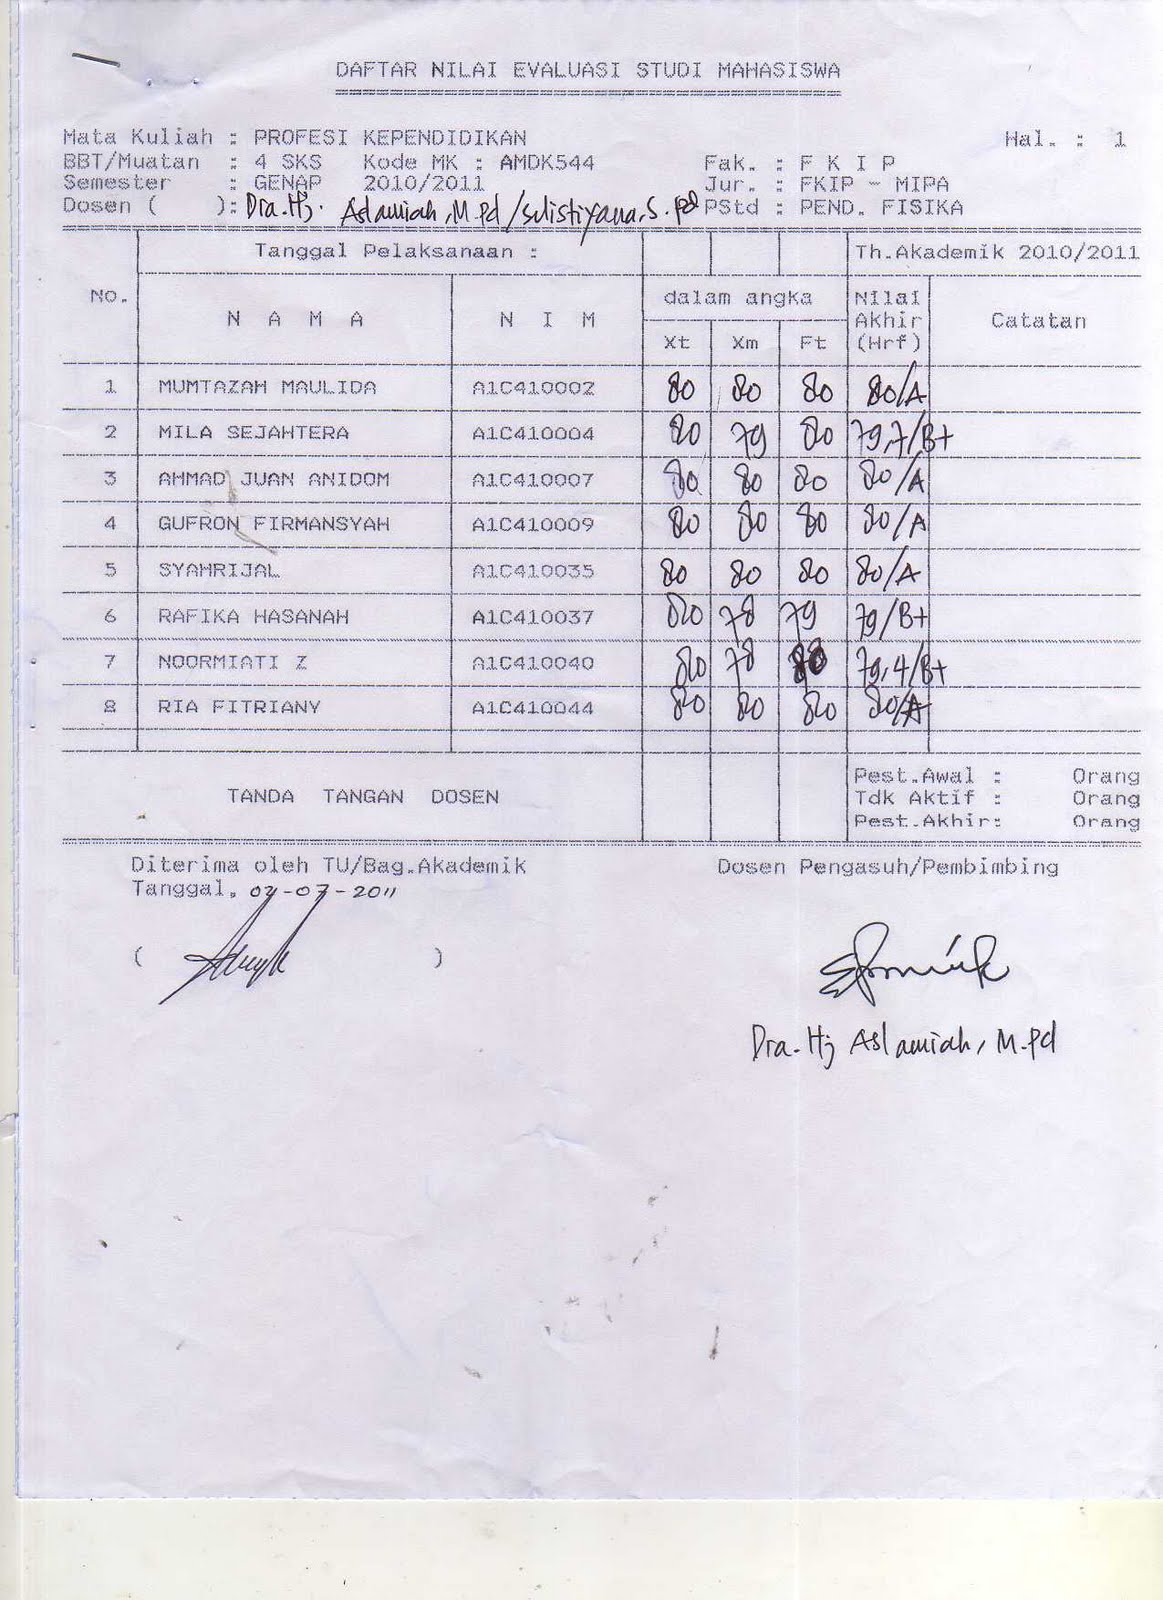 DAFTAR NILAI EVALUASI STUDI MAHASISWA
Mata Kuliah : PROFESI KEPENDIDIKAN Hal. : 1
BBT/Muatan : 4 SKS Kode MK : AMDK544 Fak. : F K I P
Semester : GENAP 2010/2011 Jur. : FKIP - MIPA
Dosen ( ): Dra. Hj. Aslamiah, M.Pd/Sulistiyana, S.Pd PStd : PEND. FISIKA
Tanggal Pelaksanaan : Th.Akademik 2010/2011
NO. N A M A N I M dalam angka Nilai Akhir (Hrf) Catatan
Xt Xm Ft
1 MUMTAZAH MAULIDA A1C410002 80 80 80 80/A
2 MILA SEJAHTERA A1C410004 80 79 80 79,7/B+
3 AHMAD JUAN ANIDOM A1C410007 80 80 80 80/A
4 GUFRON FIRMANSYAH A1C410009 80 80 80 80/A
5 SYAHRIJAL A1C410035 80 80 80 80/A
6 RAFIKA HASANAH A1C410037 80 78 79 79/B+
7 NOORMIATI Z A1C410040 80 78 80 79,4/B+
8 RIA FITRIANY A1C410044 80 80 80 80/A
TANDA TANGAN DOSEN
Pest.Awal : Orang
Tdk Aktif : Orang
Pest.Akhir: Orang
Diterima oleh TU/Bag.Akademik Dosen Pengasuh/Pembimbing
Tanggal. 04-07-2011
( )
Dra. Hj Aslamiah, M.Pd